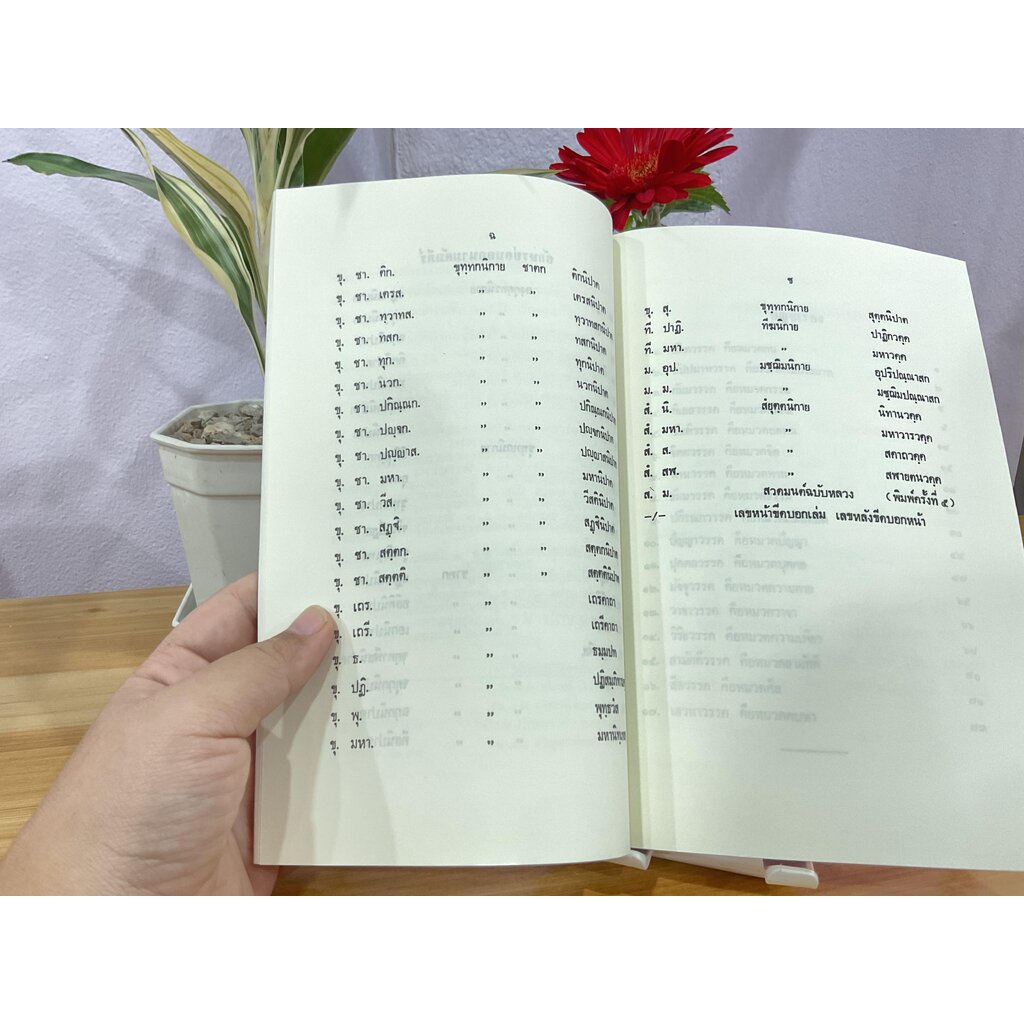 ฉ
ขุ. ชา. ติก. ขุทฺทกนิกาย ชาตก ติกนิปาต
ขุ. ชา. เตรส. ,, ,, เตรสนิปาต
ขุ. ชา. ทฺวาทส. ,, ,, ทฺวาทสกนิปาต
ขุ. ชา. ทสก. ,, ,, ทสกนิปาต
ขุ. ชา. ทุก. ,, ,, ทุกนิปาต
ขุ. ชา. นวก. ,, ,, นวกนิปาต
ขุ. ชา. ปกิณฺณก. ,, ,, ปกิณฺณกนิปาต
ขุ. ชา. ปญฺจก. ,, ,, ปญฺจกนิปาต
ขุ. ชา. ปญฺญาส. ,, ,, ปญฺญาสนิปาต
ขุ. ชา. มหา. ,, ,, มหานิปาต
ขุ. ชา. วีส. ,, ,, วีสตินิปาต
ขุ. ชา. สฏฺฐิ. ,, ,, สฏฺฐินิปาต
ขุ. ชา. สตฺตก. ,, ,, สตฺตกนิปาต
ขุ. ชา. สตฺตติ. ,, ,, สตฺตตินิปาต
ขุ. เถร. ,, เถรคาถา
ขุ. เถรี. ,, เถรีคาถา
ขุ. ธ. ,, ธมฺมปท
ขุ. ปฏิ. ,,
ขุ. พุ. ,, พุทฺธวํส
ขุ. มหา. ,,
ช
ขุ. สุ. ขุทฺทกนิกาย สุตฺตนิปาต
ที. ปาฏิ. ทีฆนิกาย ปาฏิกวคฺค
ที. มหา. ,, มหาวคฺค
ม. อุป. มชฺฌิมนิกาย อุปริปณฺณาสก
ม. ม. ,, มชฺฌิมปณฺณาสก
สํ. นิ. สํยุตฺตนิกาย นิทานวคฺค
สํ. มหา. ,, มหาวารวคฺค
สํ. ส. ,, สคาถวคฺค
สํ. สฬ. ,, สฬายตนวคฺค
ส. ม. สวดมนต์ฉบับหลวง (พิมพ์ครั้งที่ ๕)
–/– เลขหน้าขีดบอกเล่ม เลขหลังขีดบอกหน้า